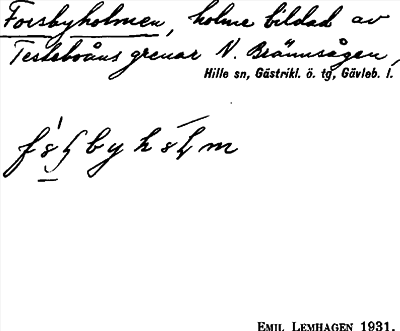 Forsbyholmen, holme bildad av
Testeboåns grenar N. Brännsågen,
Hille sn, Gästrikl. ö. tg, Gävleb. l.
EMIL LEMHAGEN 1931.